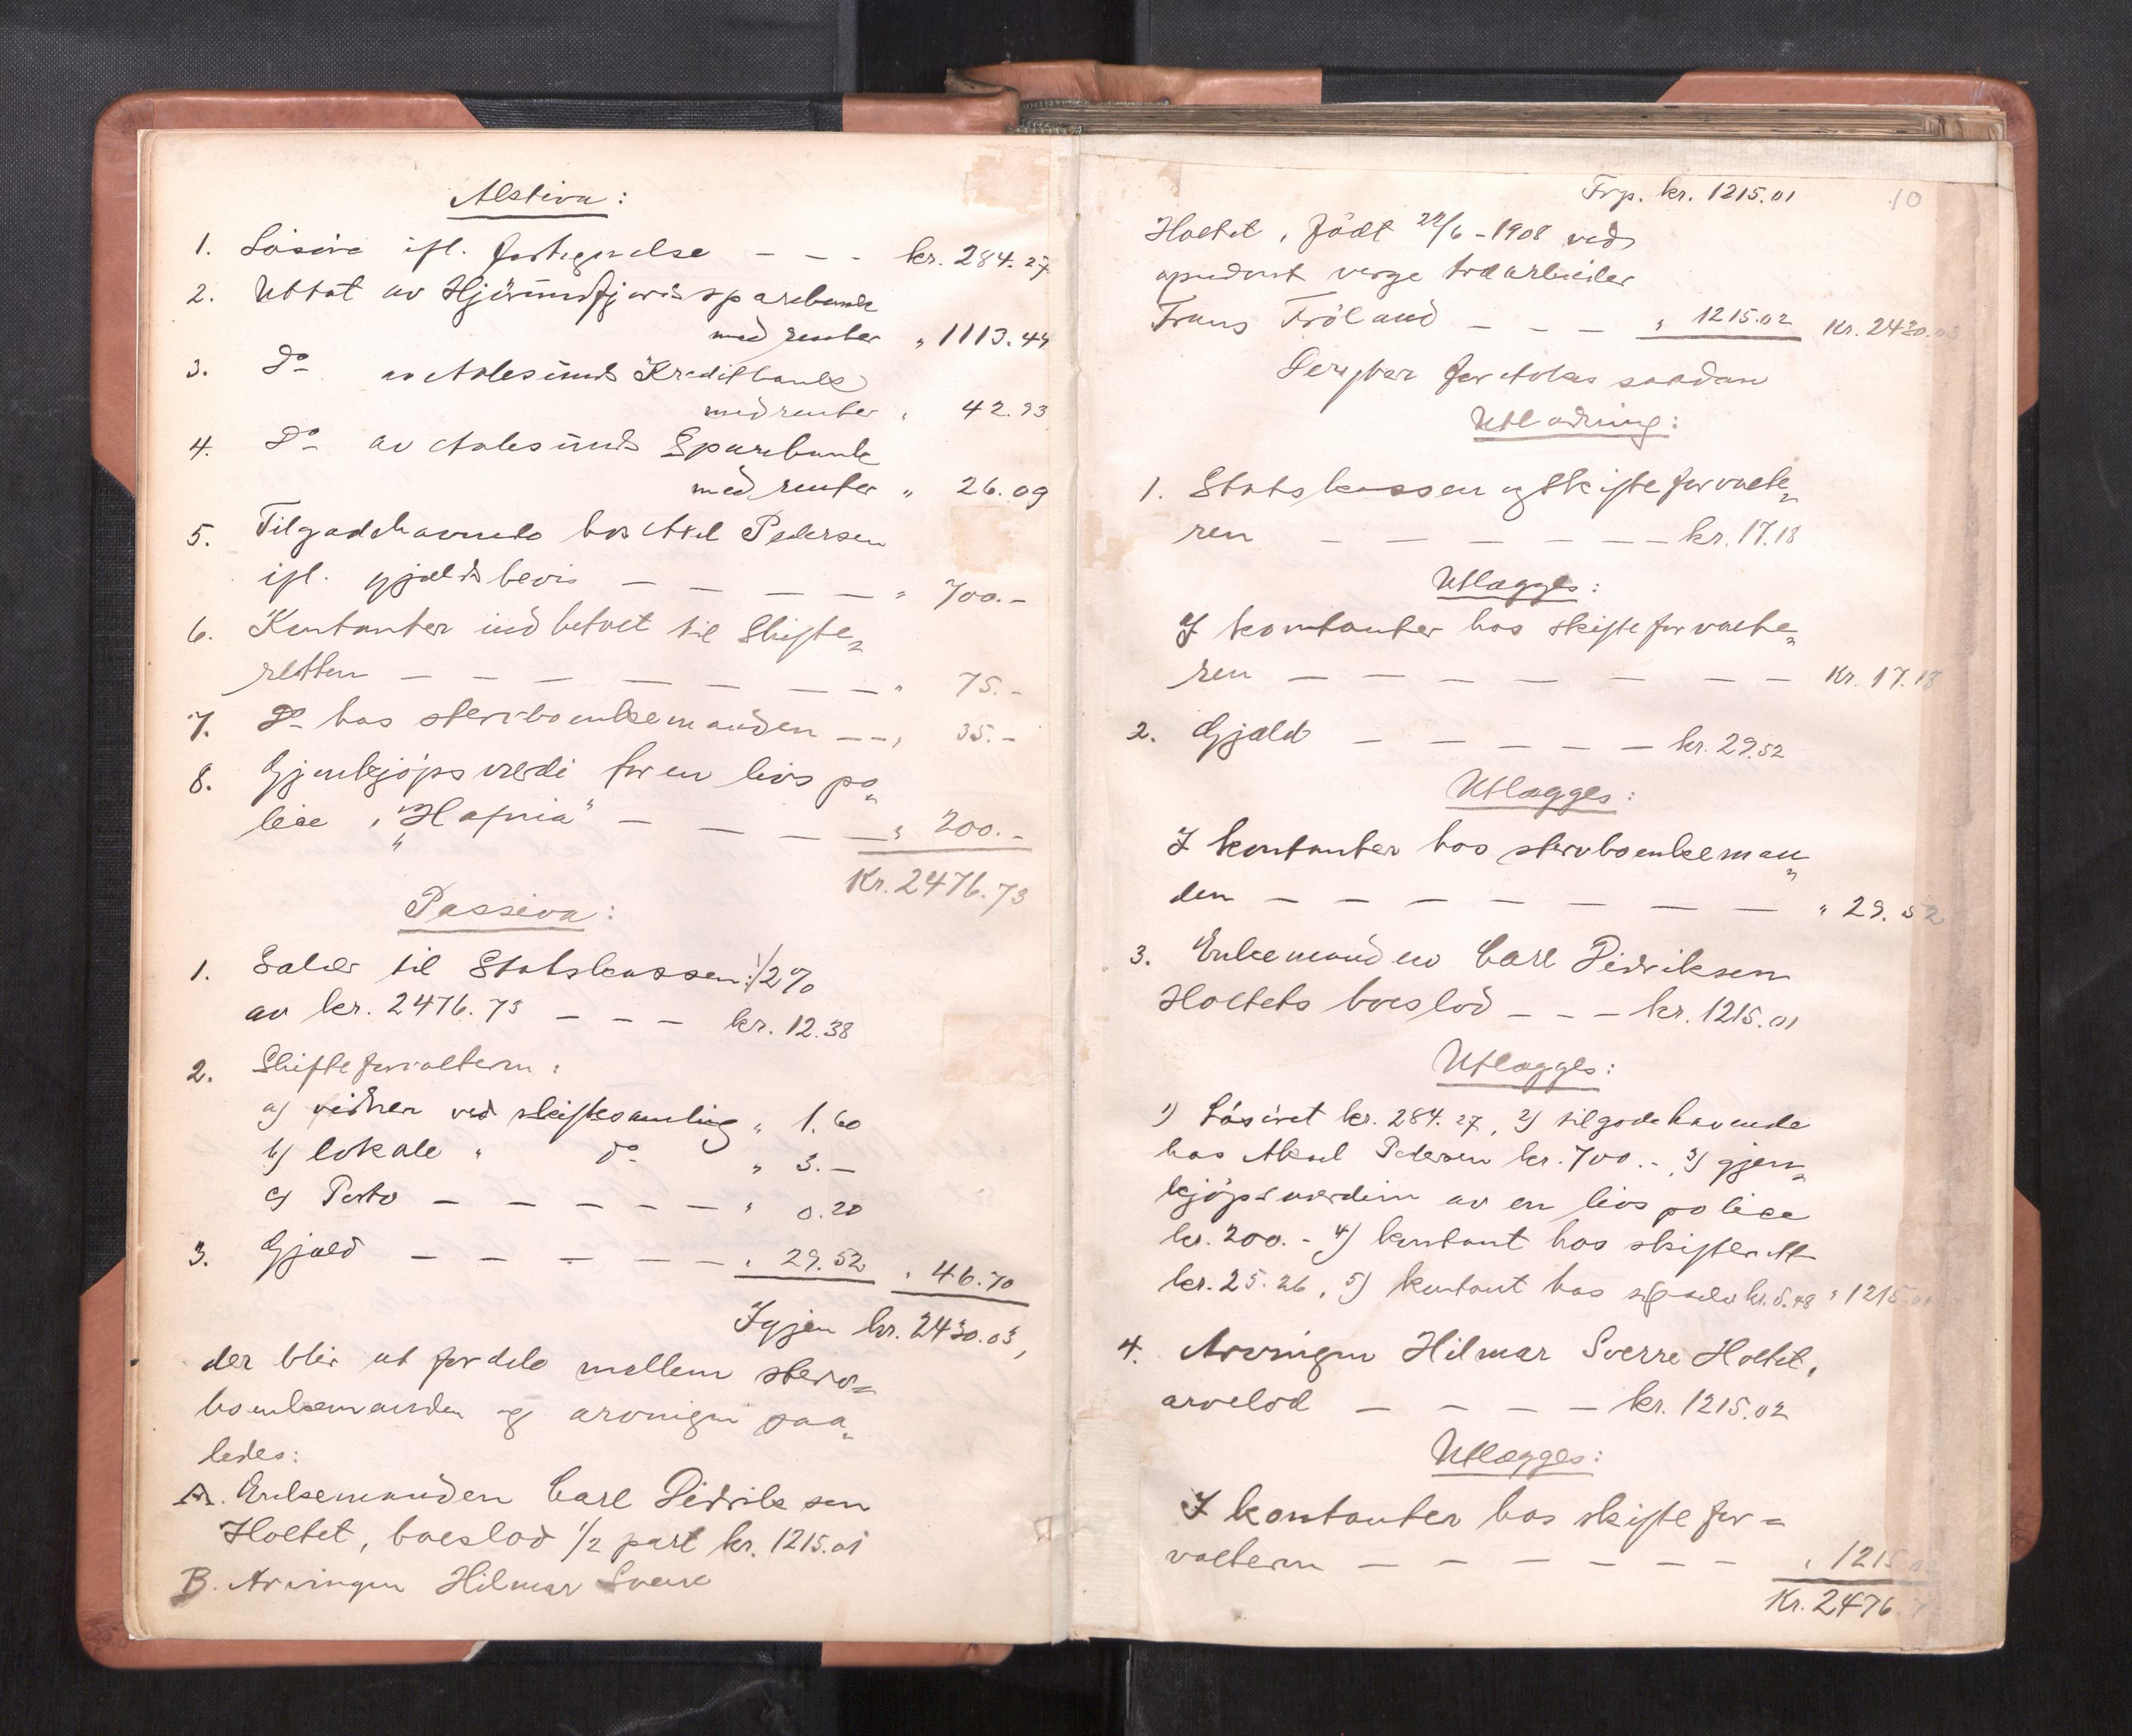 Aktiva:
1. Løsøre ifl. fortegnelse - - - kr. 284.27
2. Uttat av Hjørundfjords sparebank
med renter " 1113.44
3. Do av Aalesunds Kreditbank
med renter " 42.93
4. Do av Aalesunds Sparebank
med renter " 26.09
5. Tilgodehavende hos Axel Pedersen
ifl. gjældsbevis - - - - " 700.-
6. Kontanter indbetalt til Skifte-
retten - - - - - - - " 75.-
7. Do hos stervboenkemanden - - " 35.-
8. Gjenkjøpsværdi for en livspo-
lice i "Hafnia" - - - - " 200.-
Kr. 2476.73
Passiva:
1. Salær til Statskassen: 1/2 %
av kr. 2476.73 - - - kr. 12.38
2. Skifteforvalteren:
a) vidner ved skiftesamling " 1.60
b) lokale " do " 3.-
c) Porto - - - - - " 0.20
3. Gjæld - - - - - - " 29.52 " 46.70
Igjen kr. 2430.03,
der blir at fordele mellem sterv-
boenkemanden og arvingen saa-
ledes:
A. Enkemanden Carl Didriksen
Holtet, boeslod 1/2 part kr. 1215.01
B. Arvingen Hilmar Sverre
10
Frp. kr. 1215.01
Holtet, født 22/6 - 1908 ved
opnævnt verge
Frans Frøland - - - " 1215.02 Kr. 2430.03
Derpaa foretokes saadan
Utlodning:
1. Statskassen og Skifteforvalte-
ren - - - - - - kr. 17.18
Utlægges:
I kontanter hos skifteforvalte-
ren - - - - - - - Kr. 17.18
2. Gjæld - - - - - kr. 29.52
Utlægges:
I kontanter hos stervboenkeman-
den - - - - - - - " 29.52
3. Enkemanden Carl Didriksen
Holtets boeslod - - - kr. 1215.01
Utlægges:
1) Løsøret kr. 284.27, 2) tilgodehavende
hos Aksel Pedersen kr. 700.- 3) gjen-
kjøpsværdien av en livspolice
kr. 200.- 4) kontant hos skifterett
kr. 25.26, 5) kontant hos sig selv kr. 5.48 " 1215.01
4. Arvingen Hilmar Sverre Holtet,
arvelod - - - - kr. 1215.02
Utlægges:
I kontanter hos skiftefor-
valteren - - - - - - " 1215.02
Kr. 2476.7